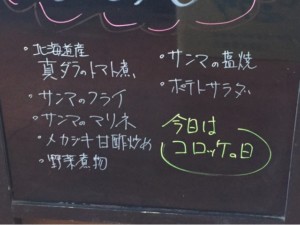 ・北海道産
真ダラのトマト煮
・サンマのフライ
・サンマのマリネ
・メカジキ甘酢炒め
・野菜煮物
・サンマの塩焼
・ポテトサラダ
今日は
コロッケの日